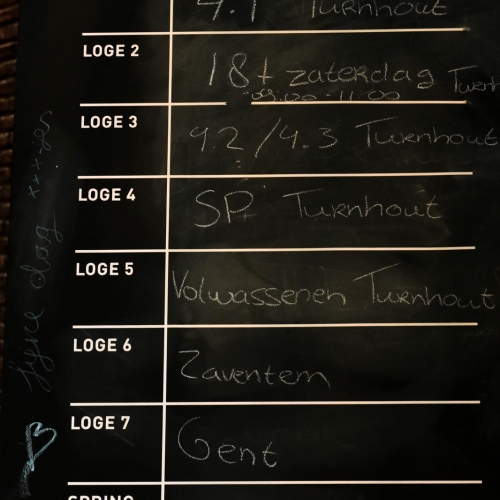 4.1 Turnhout
LOGE 2
18+ zaterdag Turnh
09.00-11.00
LOGE 3
4.2/4.3 Turnhout
LOGE 4
SP. Turnhout
LOGE 5
Volwassenen Turnhout
LOGE 6
Zaventem
LOGE 7
Gent
SPRING
Fijne dag xxx